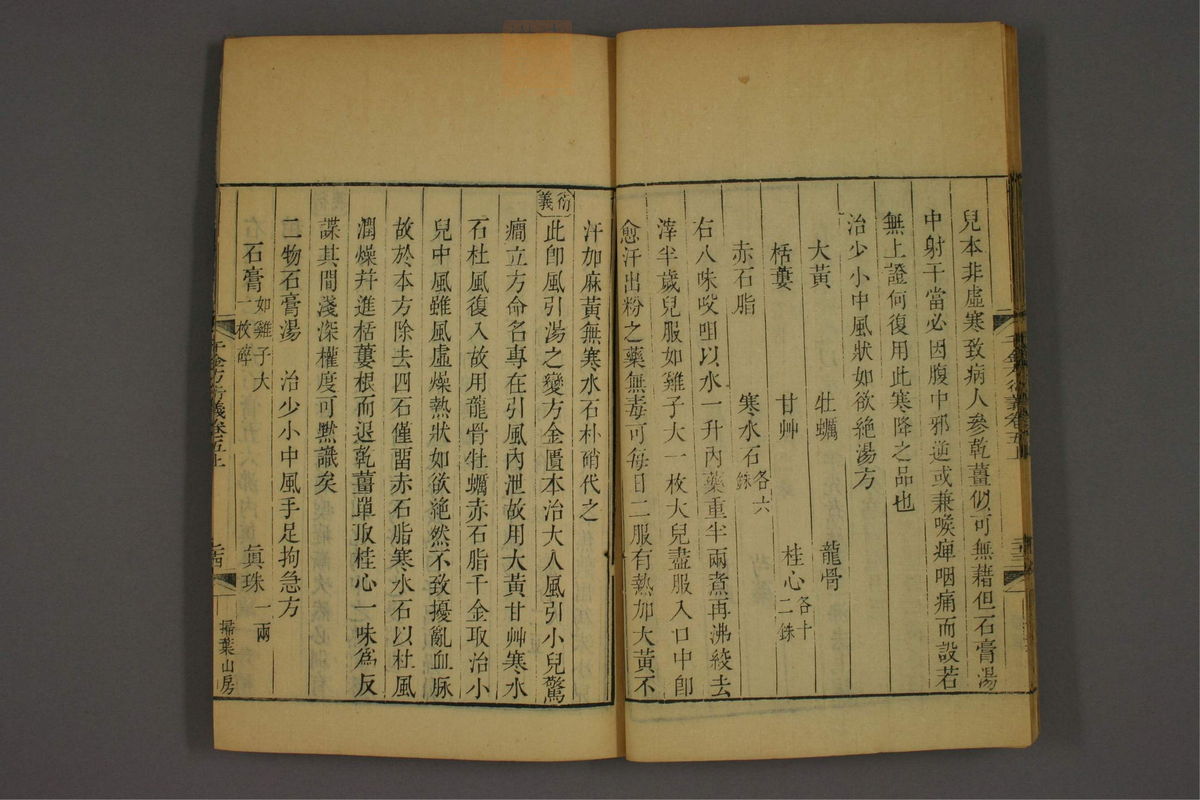 兒本非虛寒致病人參乾薑似可無藉但石膏湯
中射干當必因腹中邪逆或兼喉痺咽痛而設若
無上證何復用此寒降之品也
治少小中風狀如欲絶湯方
大黃 牡蠣 龍骨
栝蔞 甘艸 桂心各十二銖
赤石脂 寒水石各六銖
右八味㕮咀以水一升內藥重半兩煮再沸絞去
滓半歲兒服如雞子大一枚大兒盡服入口中卽
愈汗出粉之藥無毒可每日二服有熱加大黃不
汗加麻黃無寒水石朴硝代之
衍義 此卽風引湯之變方金匱本治大人風引小兒驚
癎立方命名專在引風內泄故用大黃甘艸寒水
石杜風復入故用龍骨牡蠣赤石脂千金取治小
兒中風雖風虛燥熱狀如欲絶然不致擾亂血脉
故於本方除去四石僅畱赤石脂寒水石以杜風
潤燥幷進栝蔞根而退乾薑單取桂心一味爲反
諜其間淺深權度可默識矣
二物石膏湯 治少小中風手足拘急方
石膏如雞子大一枚碎 眞珠一兩
千金方衍義卷五上
掃葉山房